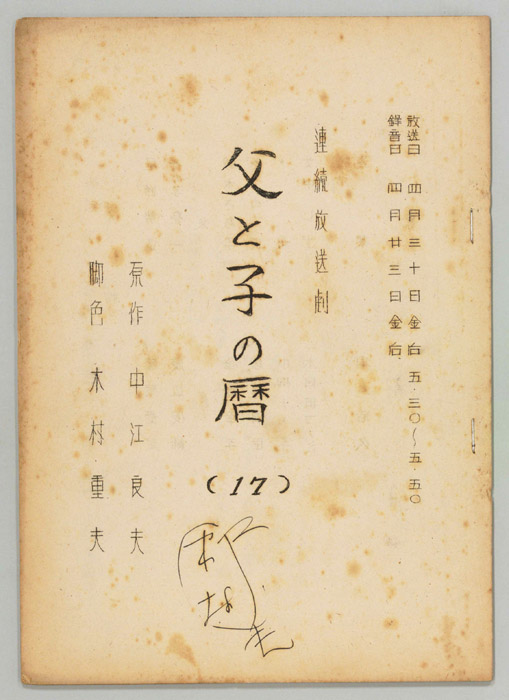 放送日 四月三十日金后五・三〇〜五・五〇
録音日 四月廿三日金后
連続放送劇
父と子の暦
(17)
原作 中江良夫
脚色 木村重夫